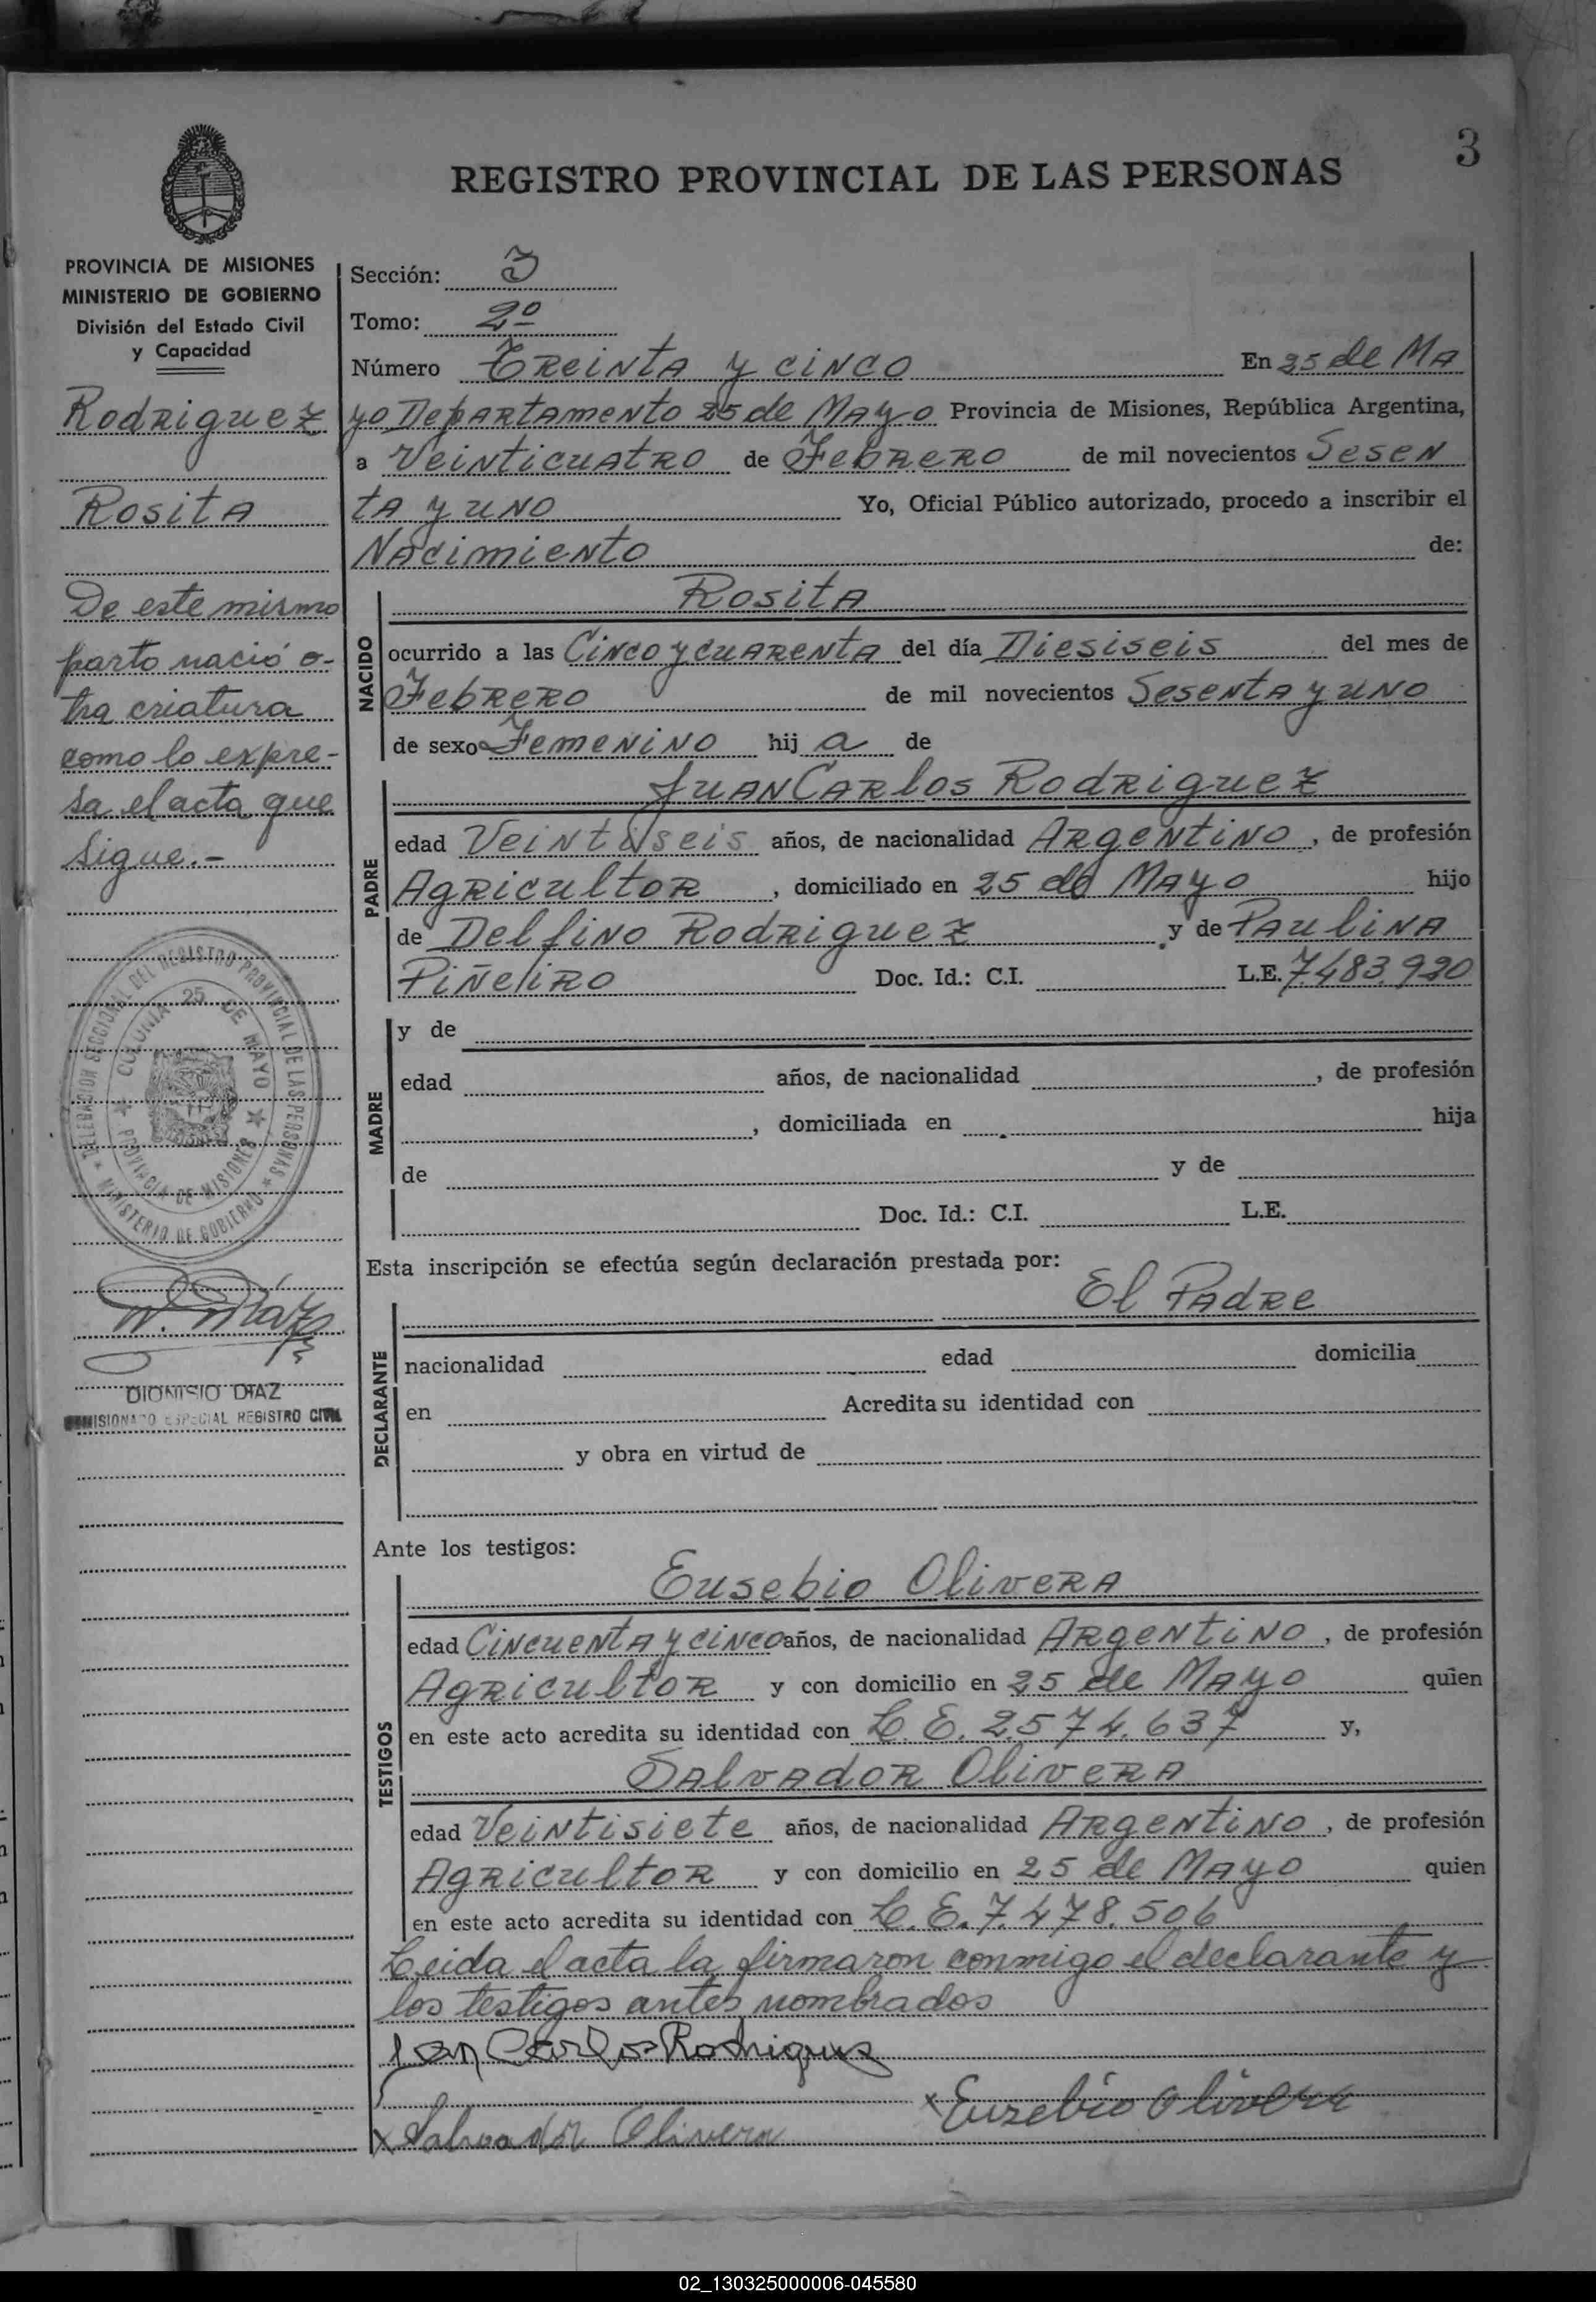 3
REGISTRO PROVINCIAL DE LAS PERSONAS
PROVINCIA DE MISIONES
MINISTERIO DE GOBIERNO
División del Estado Civil
y Capacidad
Rodriguez
Rosita
De este mismo
parto nació o-
tra criatura
como lo expre-
sa el acta que
sigue.-
DELEGACION SECCIONAL DEL REGISTRO PROVINCIAL DE LAS PERSONAS
COLONIA 25 DE MAYO
PROVINCIA DE MISIONES
MINISTERIO DE GOBIERNO
DIONISIO DIAZ
COMISIONADO ESPECIAL REGISTRO CIVIL
Sección: J
Tomo: 2º
Número Treinta y cinco En 25 de Ma
yo Departamento 25 de Mayo Provincia de Misiones, República Argentina,
a Veinticuatro de Febrero de mil novecientos Sesen
ta y uno Yo, Oficial Público autorizado, procedo a inscribir el
Nacimiento de:
NACIDO
Rosita
ocurrido a las Cinco y cuarenta del día Diesiseis del mes de
Febrero de mil novecientos Sesenta y uno
de sexo Femenino hij a de
PADRE
Juan Carlos Rodriguez
edad Veintiseis años, de nacionalidad Argentino, de profesión
Agricultor, domiciliado en 25 de Mayo hijo
de Delfino Rodriguez y de Paulina
Piñeiro Doc. Id.: C.I. L.E. 7.483.920
MADRE
y de
edad años, de nacionalidad , de profesión
, domiciliada en hija
de y de
Doc. Id.: C.I. L.E.
Esta inscripción se efectúa según declaración prestada por:
DECLARANTE
El Padre
nacionalidad edad domicilia
en Acredita su identidad con
y obra en virtud de
Ante los testigos:
TESTIGOS
Eusebio Olivera
edad Cincuenta y cinco años, de nacionalidad Argentino, de profesión
Agricultor y con domicilio en 25 de Mayo quien
en este acto acredita su identidad con L.E. 2.574.637 y,
Salvador Olivera
edad Veintisiete años, de nacionalidad Argentino, de profesión
Agricultor y con domicilio en 25 de Mayo quien
en este acto acredita su identidad con L.E. 7.478.506
Leida el acta la firmaron conmigo el declarante y
los testigos antes nombrados
Juan Carlos Rodriguez
x Euzebio Olivera
x Salvador Olivera
02_130325000006-045580